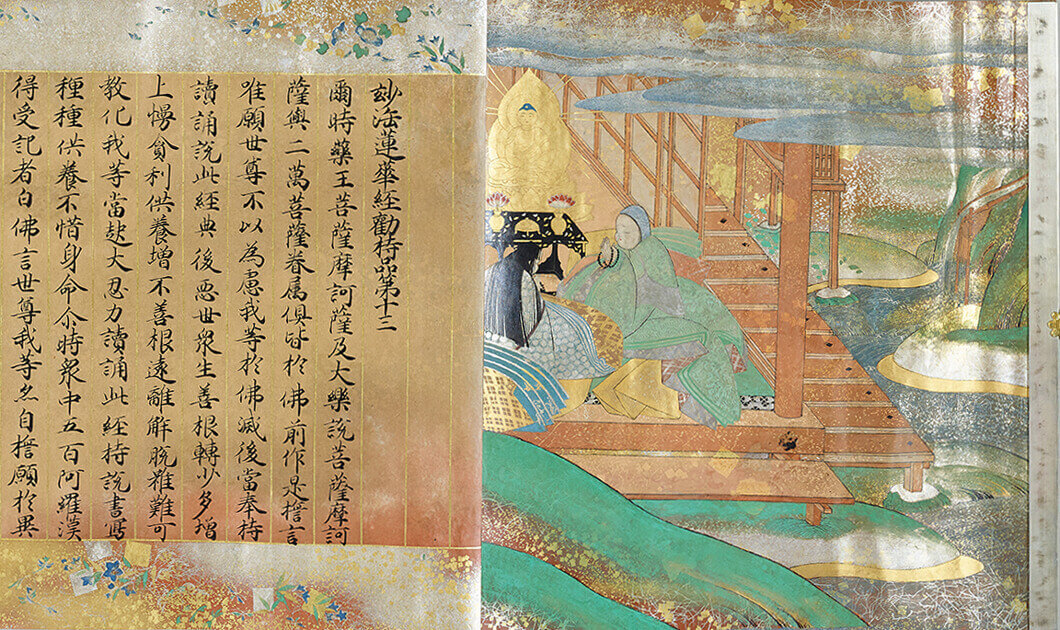 玅法蓮華經勸持品第十三
爾時藥王菩薩摩訶薩及大樂說菩薩摩訶
薩與二萬菩薩眷属俱皆於佛前作是誓言
唯願世尊不以為慮我等於佛滅後當奉持
讀誦說此經典後惡世衆生善根轉少多增
上慢貪利供養增不善根遠離解脫雖難可
教化我等當起大忍力讀誦此經持說書寫
種種供養不惜身命尒時衆中五百阿羅漢
得受記者白佛言世尊我等亦自誓願於異